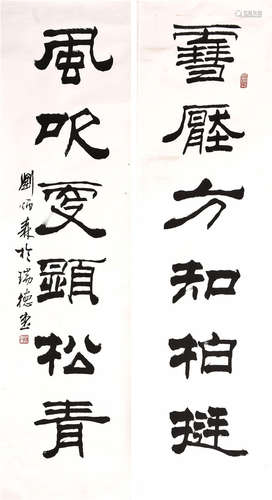 雪壓方知柏挺
風吹更顕松青
劉炳森於瑞德堂